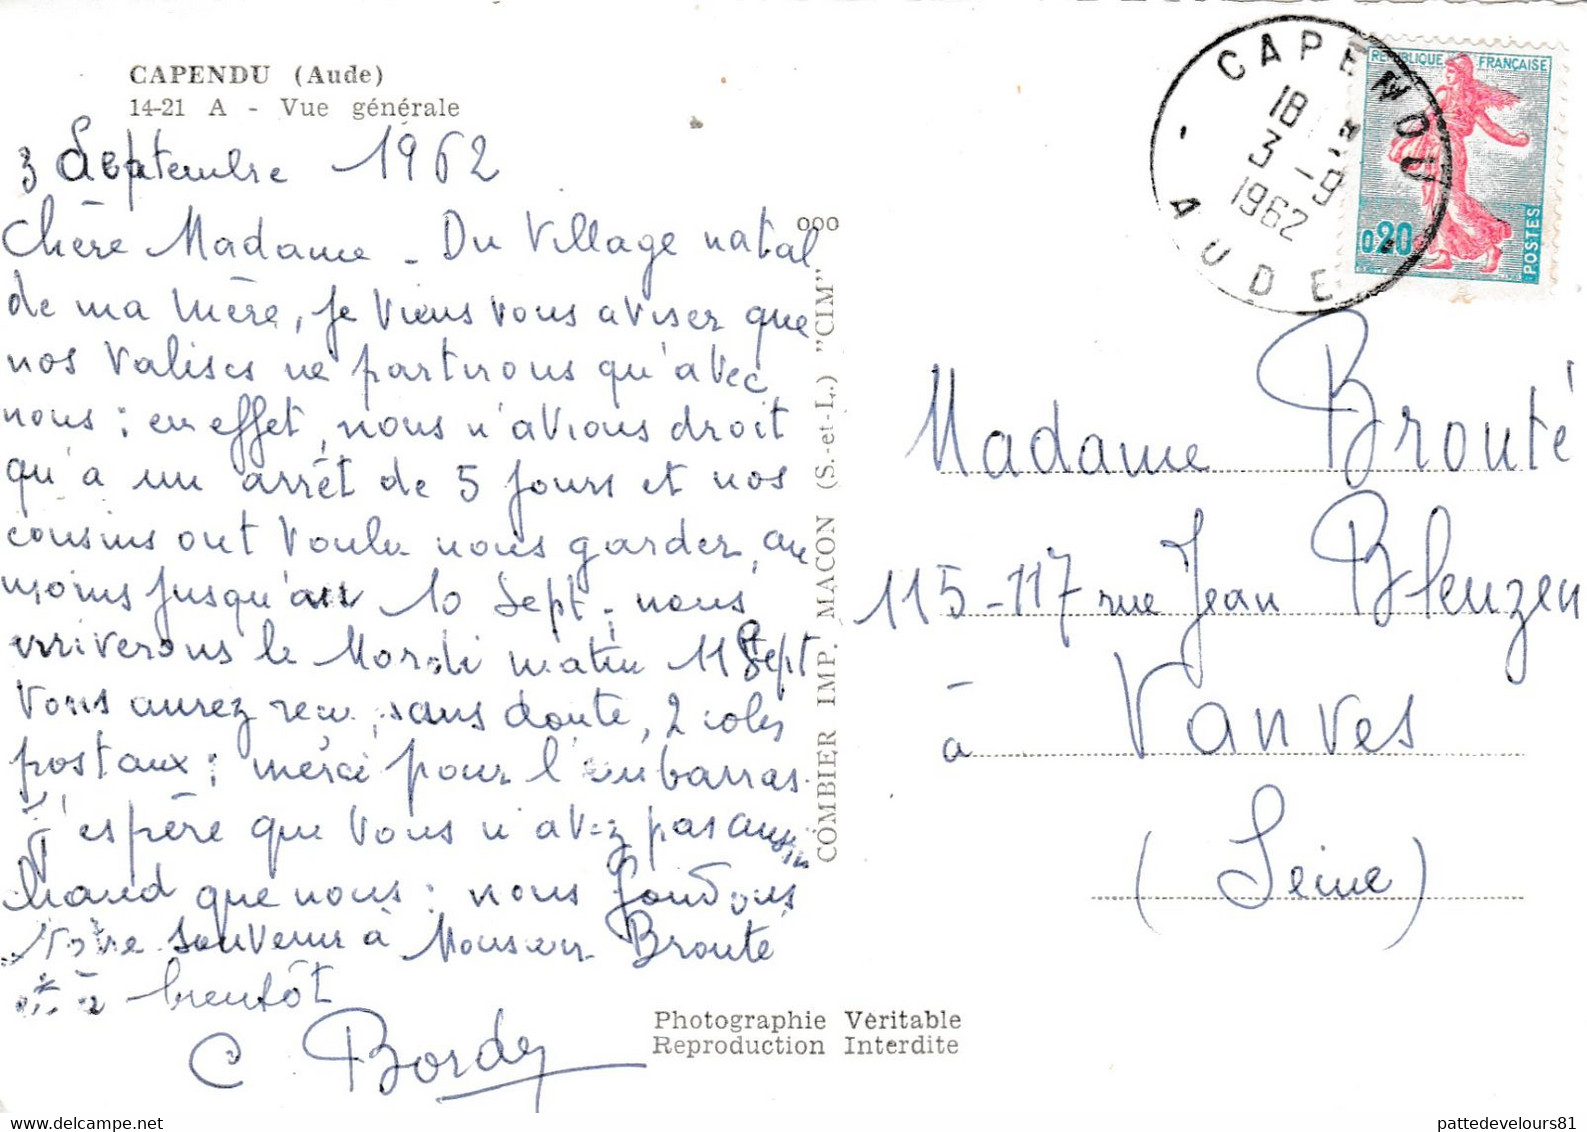 CAPENDU (Aude)
14-21 A - Vue générale
3 Septembre 1962
Chère Madame - Du Village natal
de ma mère, je viens vous aviser que
nos valises ne partirons qu'avec
nous ; en effet, nous n'avions droit
qu'a un arrêt de 5 jours et nos
cousins ont voulu nous garder, au
moins jusqu'au 10 Sept ; nous
arriverons le Mardi matin 11 Sept
Vous aurez reçu, sans doute, 2 colis
postaux ; merci pour l'embarras.
J'espère que vous n'avez pas aussi
chaud que nous : nous joindons
Notre souvenir à Monsieur Brouté
à bientôt
C Bordes
ooo
COMBIER IMP. MACON (S.-et-L.) "CIM"
Photographie Véritable
Reproduction Interdite
CAPENDU
18
3 -9
1962
AUDE
REPUBLIQUE FRANÇAISE
0,20
POSTES
Madame Brouté
115-117 rue Jean Bleuzen
à Vanves
(Seine)
pattedevelours81